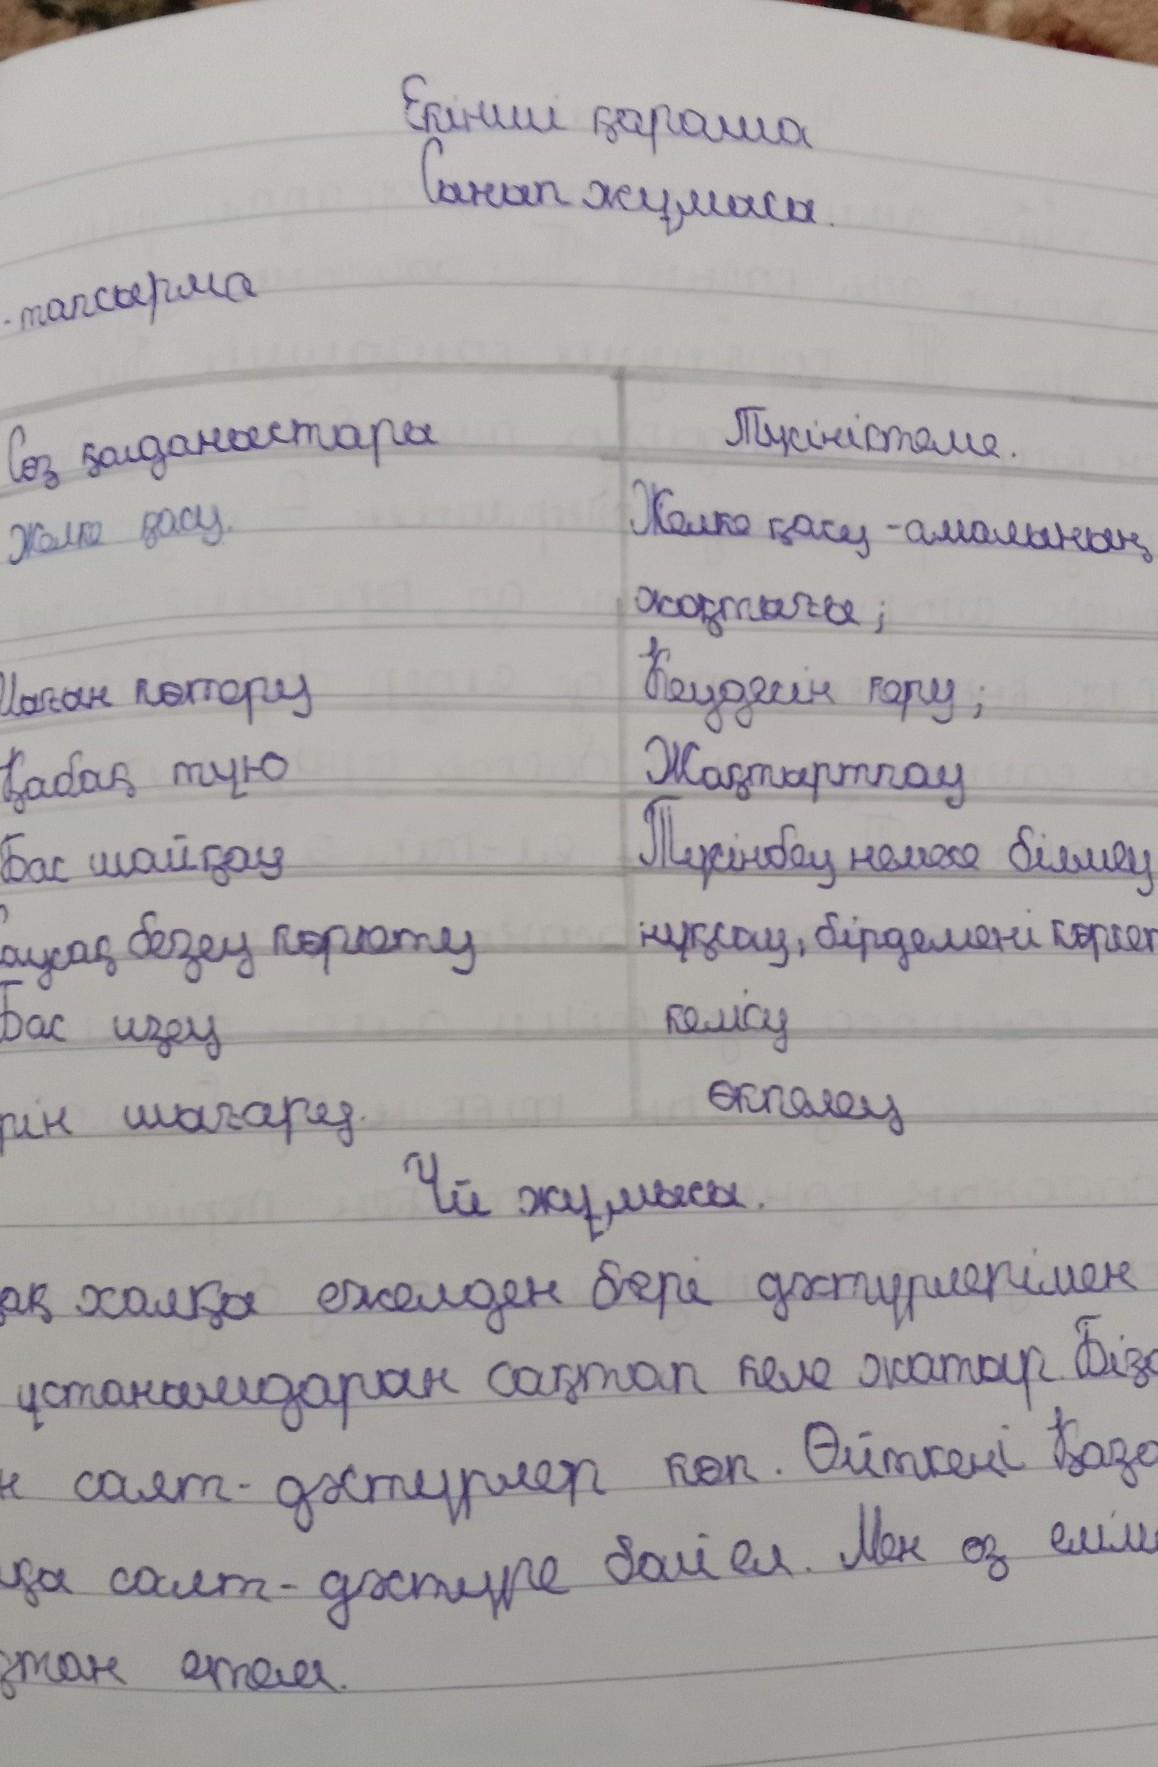 Екінші қараша
Сынып жұмысы.
-тапсырма
Сөз қолданыстары Түсініктеме.
Желке қасу. Желке қасу - амалының
жоқтығы;
көтеру Кеудесін керу;
Қабақ түю Жақтыртпау
Бас шайқау Түсінбеу немесе білмеу
безеу көрсету нұқсау, бірдемені көрсет
Бас изеу келісу
рін шығару. өкпелеу
Үй жұмысы.
ақ халқы ежелден бері дәстүрлерімен
ұстанымдарын сақтап келе жатыр. Бізд
н салт-дәстүрлер көп. Өйткені Қаза
қы салт-дәстүрге бай ел. Мен өз елім
қтан етем.